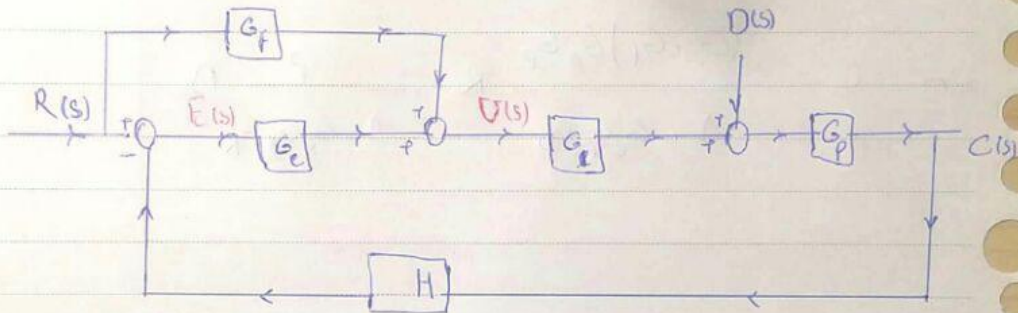 G_f
D(s)
R(s) + - E(s) G_c + + U(s) G_1 + + G_p C(s)
H